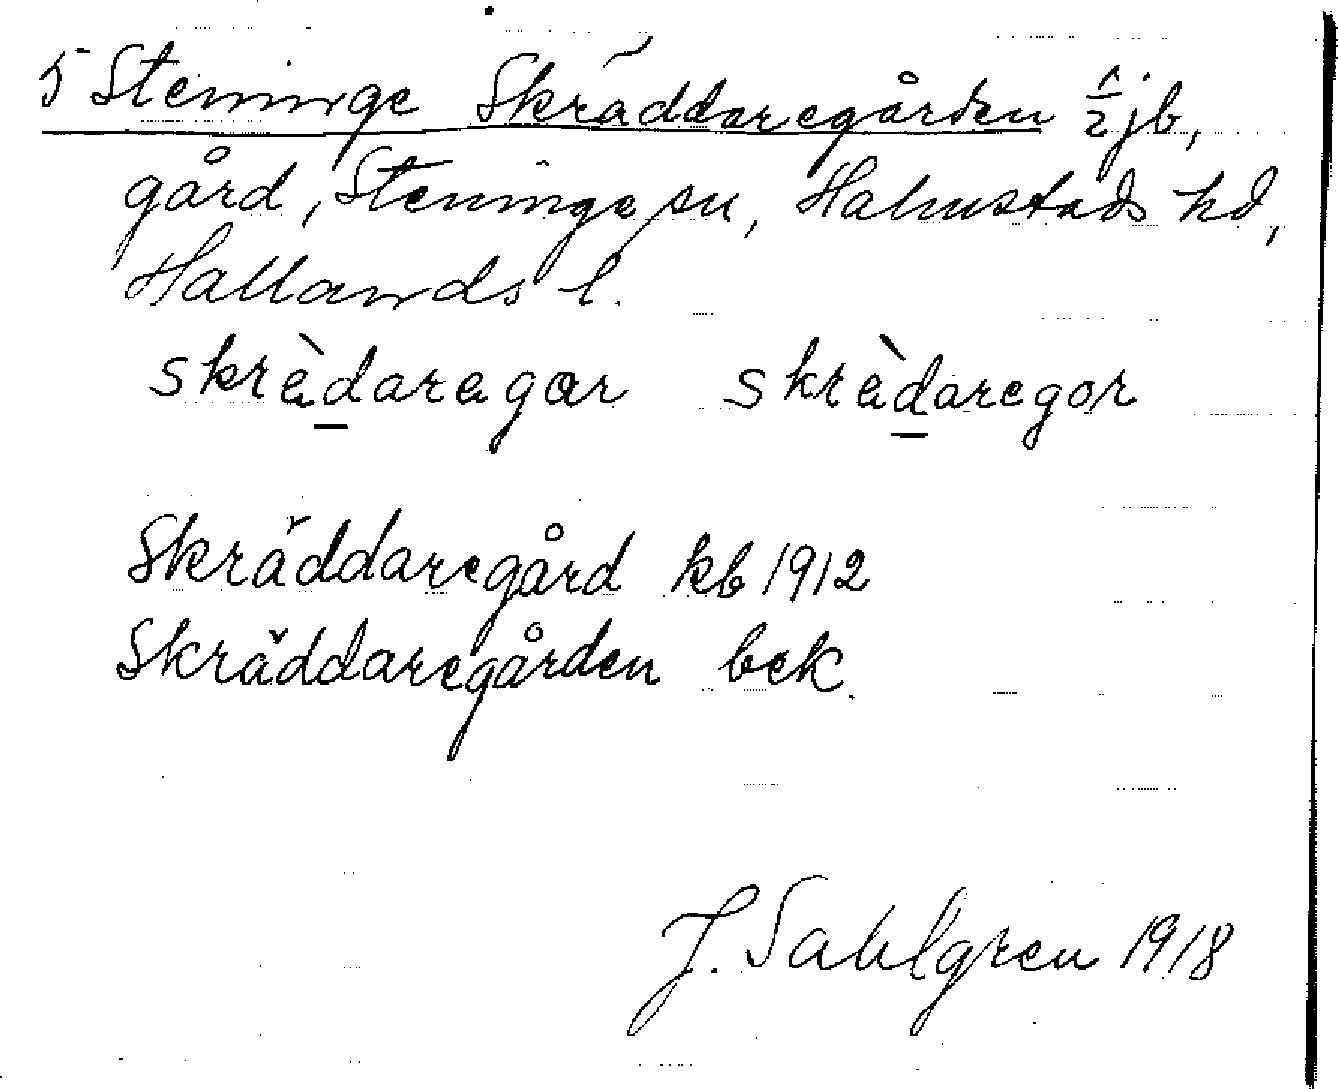 5 Steninge Skräddaregården ½ jb,
gård, Steninge sn, Halmstads hd,
Hallands l.
skrèdaregar skrèdaregor
Skräddaregård kb 1912
Skräddaregården bek.
J. Sahlgren 1918